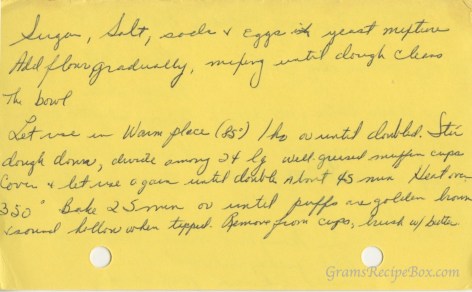 Sugar, Salt, soda & eggs in yeast mixture
Add flour gradually, mixing until dough cleans
The bowl
Let rise in Warm place (85°) 1 hr or until doubled. Stir
dough down, divide among 24 lg well greased muffin cups
Cover & let rise again until double About 45 min Heat oven
350° Bake 25 min or until puffs are golden brown
& sound hollow when tapped. Remove from cups, brush w/ butter
GramsRecipeBox.com